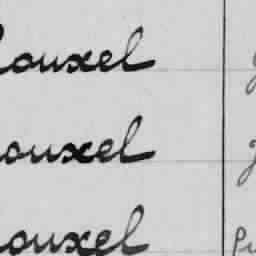 ouxel
ouxel
ouxel